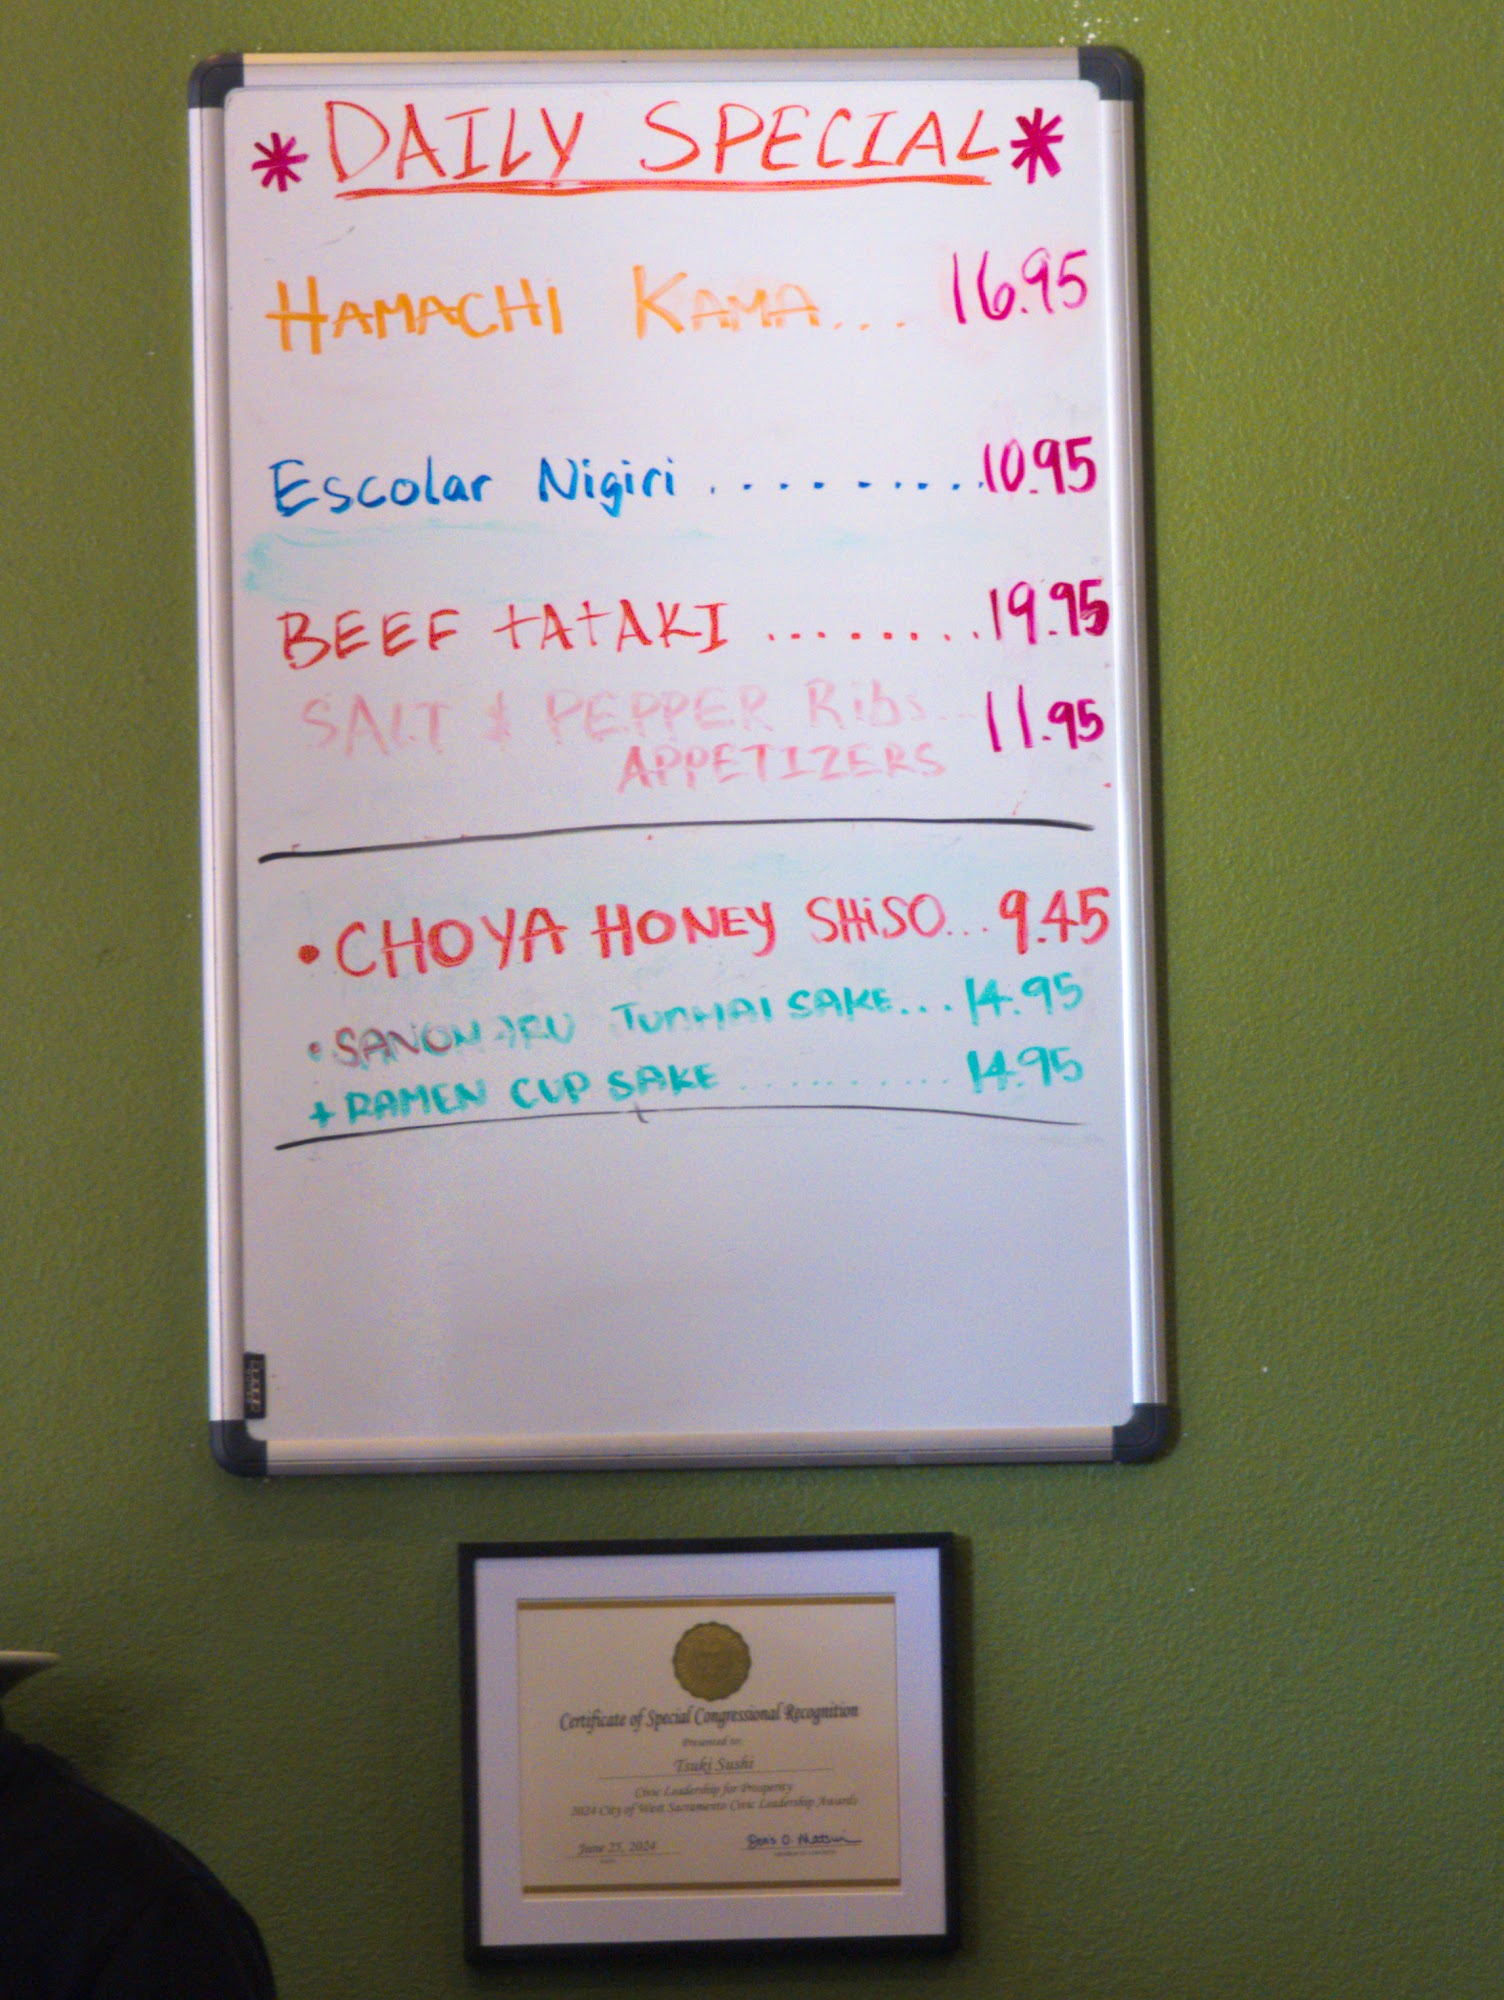 * DAILY SPECIAL *
HAMACHI KAMA... 16.95
Escolar Nigiri .......... 10.95
BEEF TATAKI ........ 19.95
SALT & PEPPER Ribs... 11.95
APPETIZERS
• CHOYA HONEY SHiSO... 9.45
• SAKE... 14.95
+ RAMEN CUP SAKE .......... 14.95
Certificate of Special Congressional Recognition
Presented to:
Tsuki Sushi
Civic Leadership for Prosperity
2024 City of West Sacramento Civic Leadership Awards
June 25, 2024
Doris O. Matsui